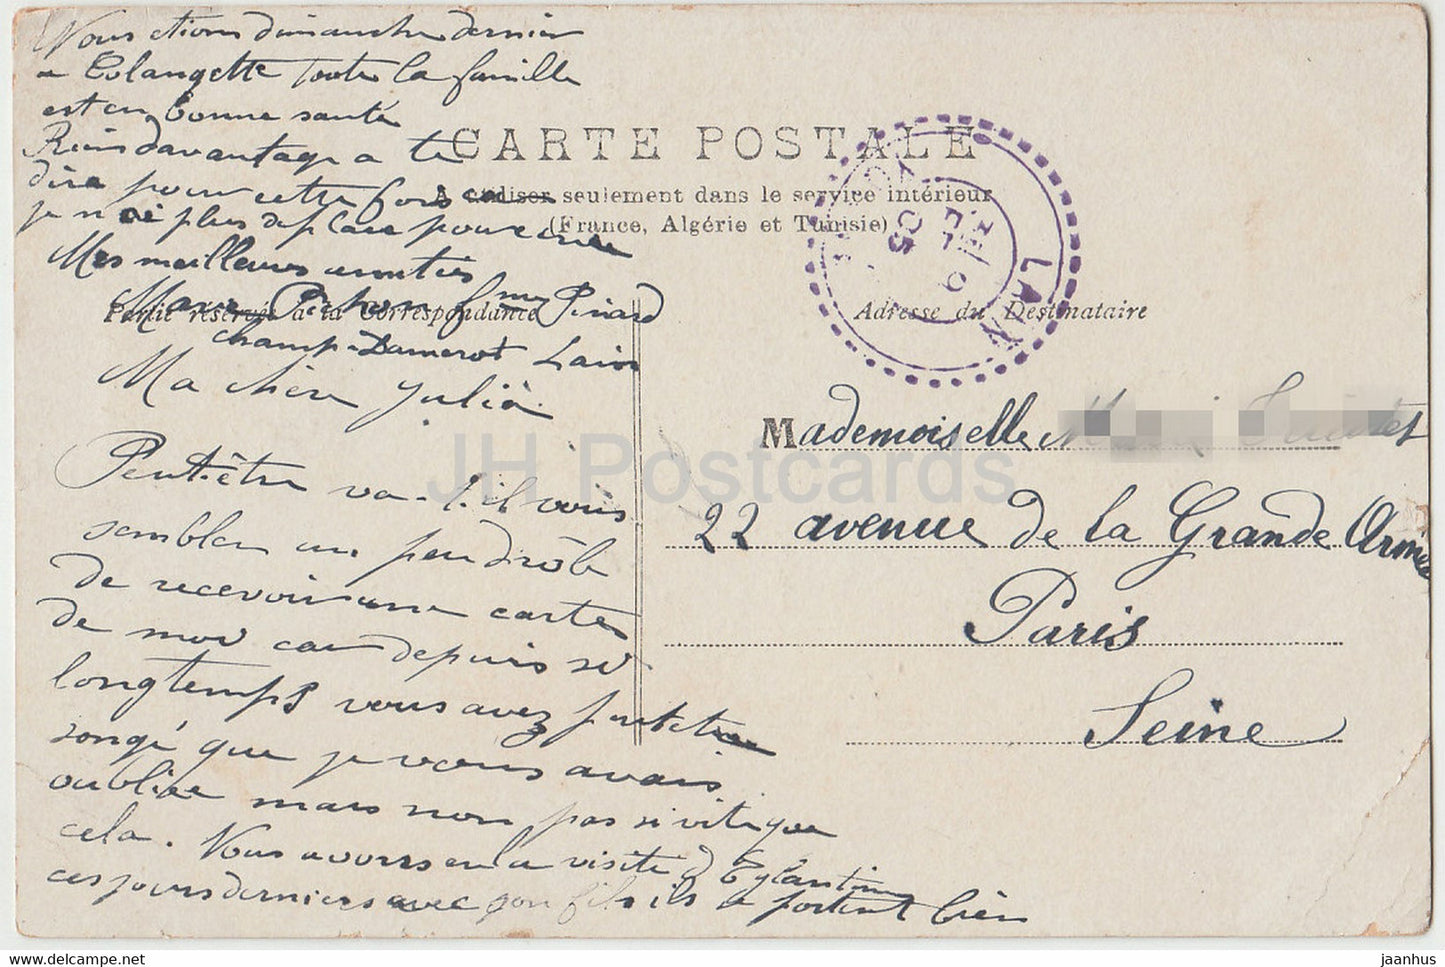 Nous étions dimanche dernier
a Colangette toute la famille
est en bonne santé
Rien davantage a te
dire pour cette fois car
je n ai plus de place pour
Mes meilleures amitiés
CARTE POSTALE
A utiliser seulement dans le service intérieur
(France, Algérie et Tunisie)
Partie réservée à la Correspondance
Pichon fme Pinard
Champ-Damerot Lain
Adresse du Destinataire
LAIN
05
Ma chère Julia
Peut-être va-t-il vous
sembler un peu drôle
de recevoir une carte
de moi car depuis si
longtemps vous avez peut être
songé que je vous avais
oubliée mais non pas si vite que
cela. Nous avons eu la visite d Eglantine
ces jours derniers avec son fils ils se portent bien
Mademoiselle
22 avenue de la Grande Armée
Paris
Seine
JH Postcards
www.hippostcard.com
jaanhus